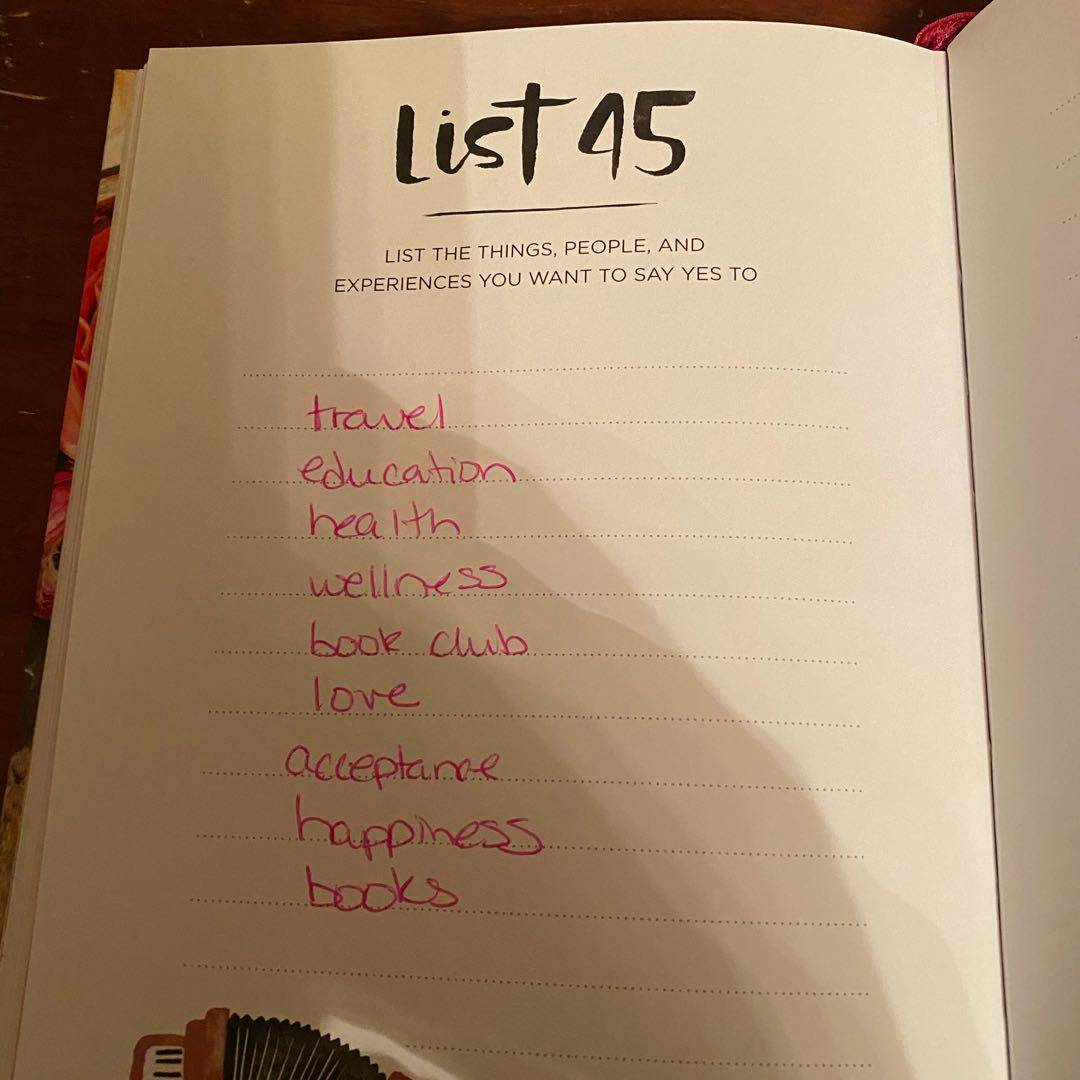 List 45
LIST THE THINGS, PEOPLE, AND
EXPERIENCES YOU WANT TO SAY YES TO
travel
education
health
wellness
book club
love
acceptance
happiness
books